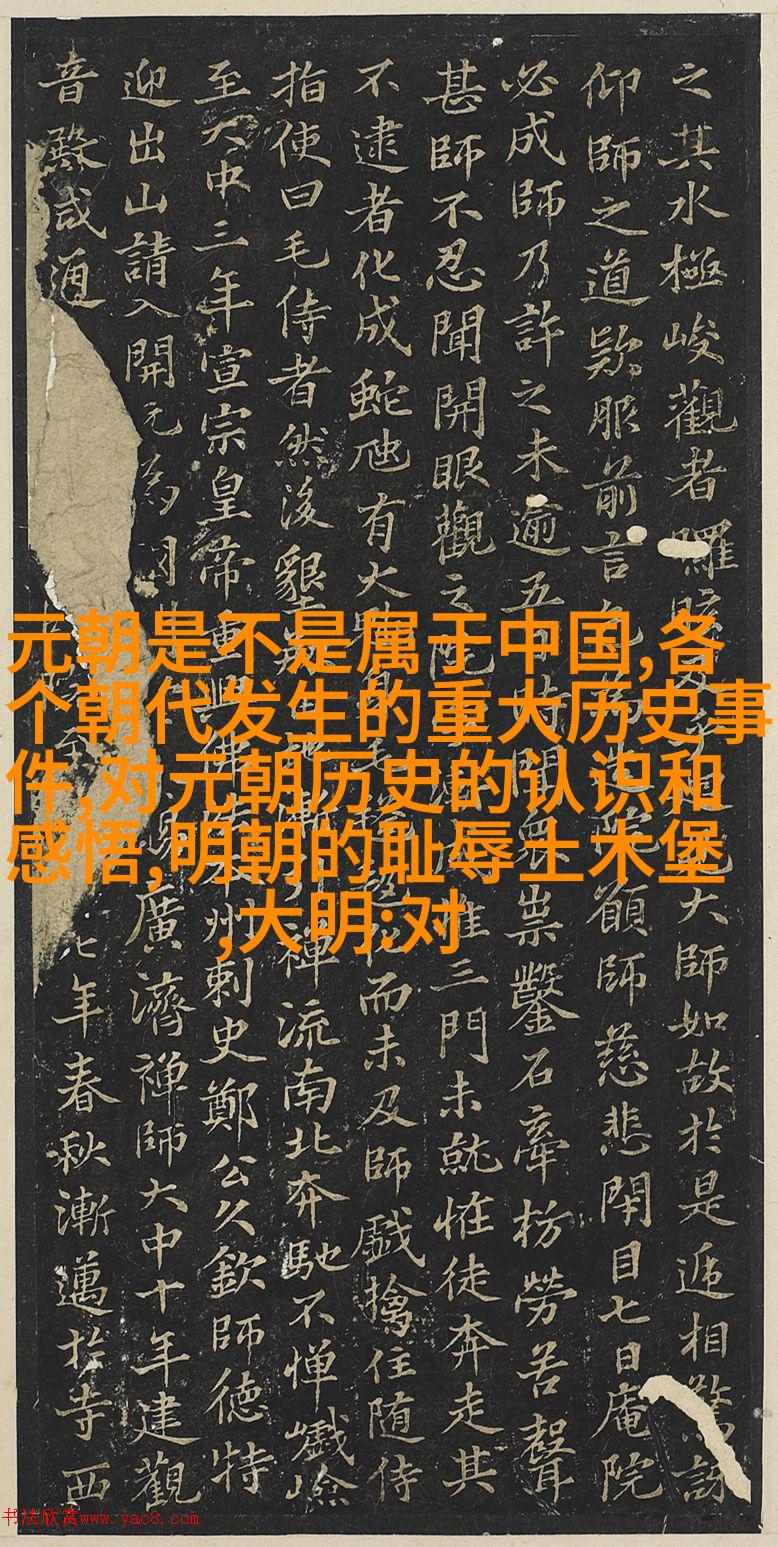 之其水極峻觀者
仰師之道欵服前言
必成師乃許之未逾五
甚師不忍聞開眼觀之
不逮者化成蛇虺有大
指使曰毛侍者然後
至大中三年宣宗皇帝
迎出山請入開元
音
咸通
元朝是不是属于中国,各
个朝代发生的重大历史事
件,对元朝历史的认识和
感悟,明朝的耻辱土木堡
,大明:对
大師如故於是遞相驚訝
願師慈悲閉目七日庵院
祟鑿石牽枋勞苦聲
三門未就惟徒奔走其
而未及師戲擒住随侍
禪流南北奔馳不憚巇嶮
刺史鄭公久欽師德特
廣濟禪師大中十年建觀
七年春秋漸邁於寺西
书法欣赏www.yac8.com